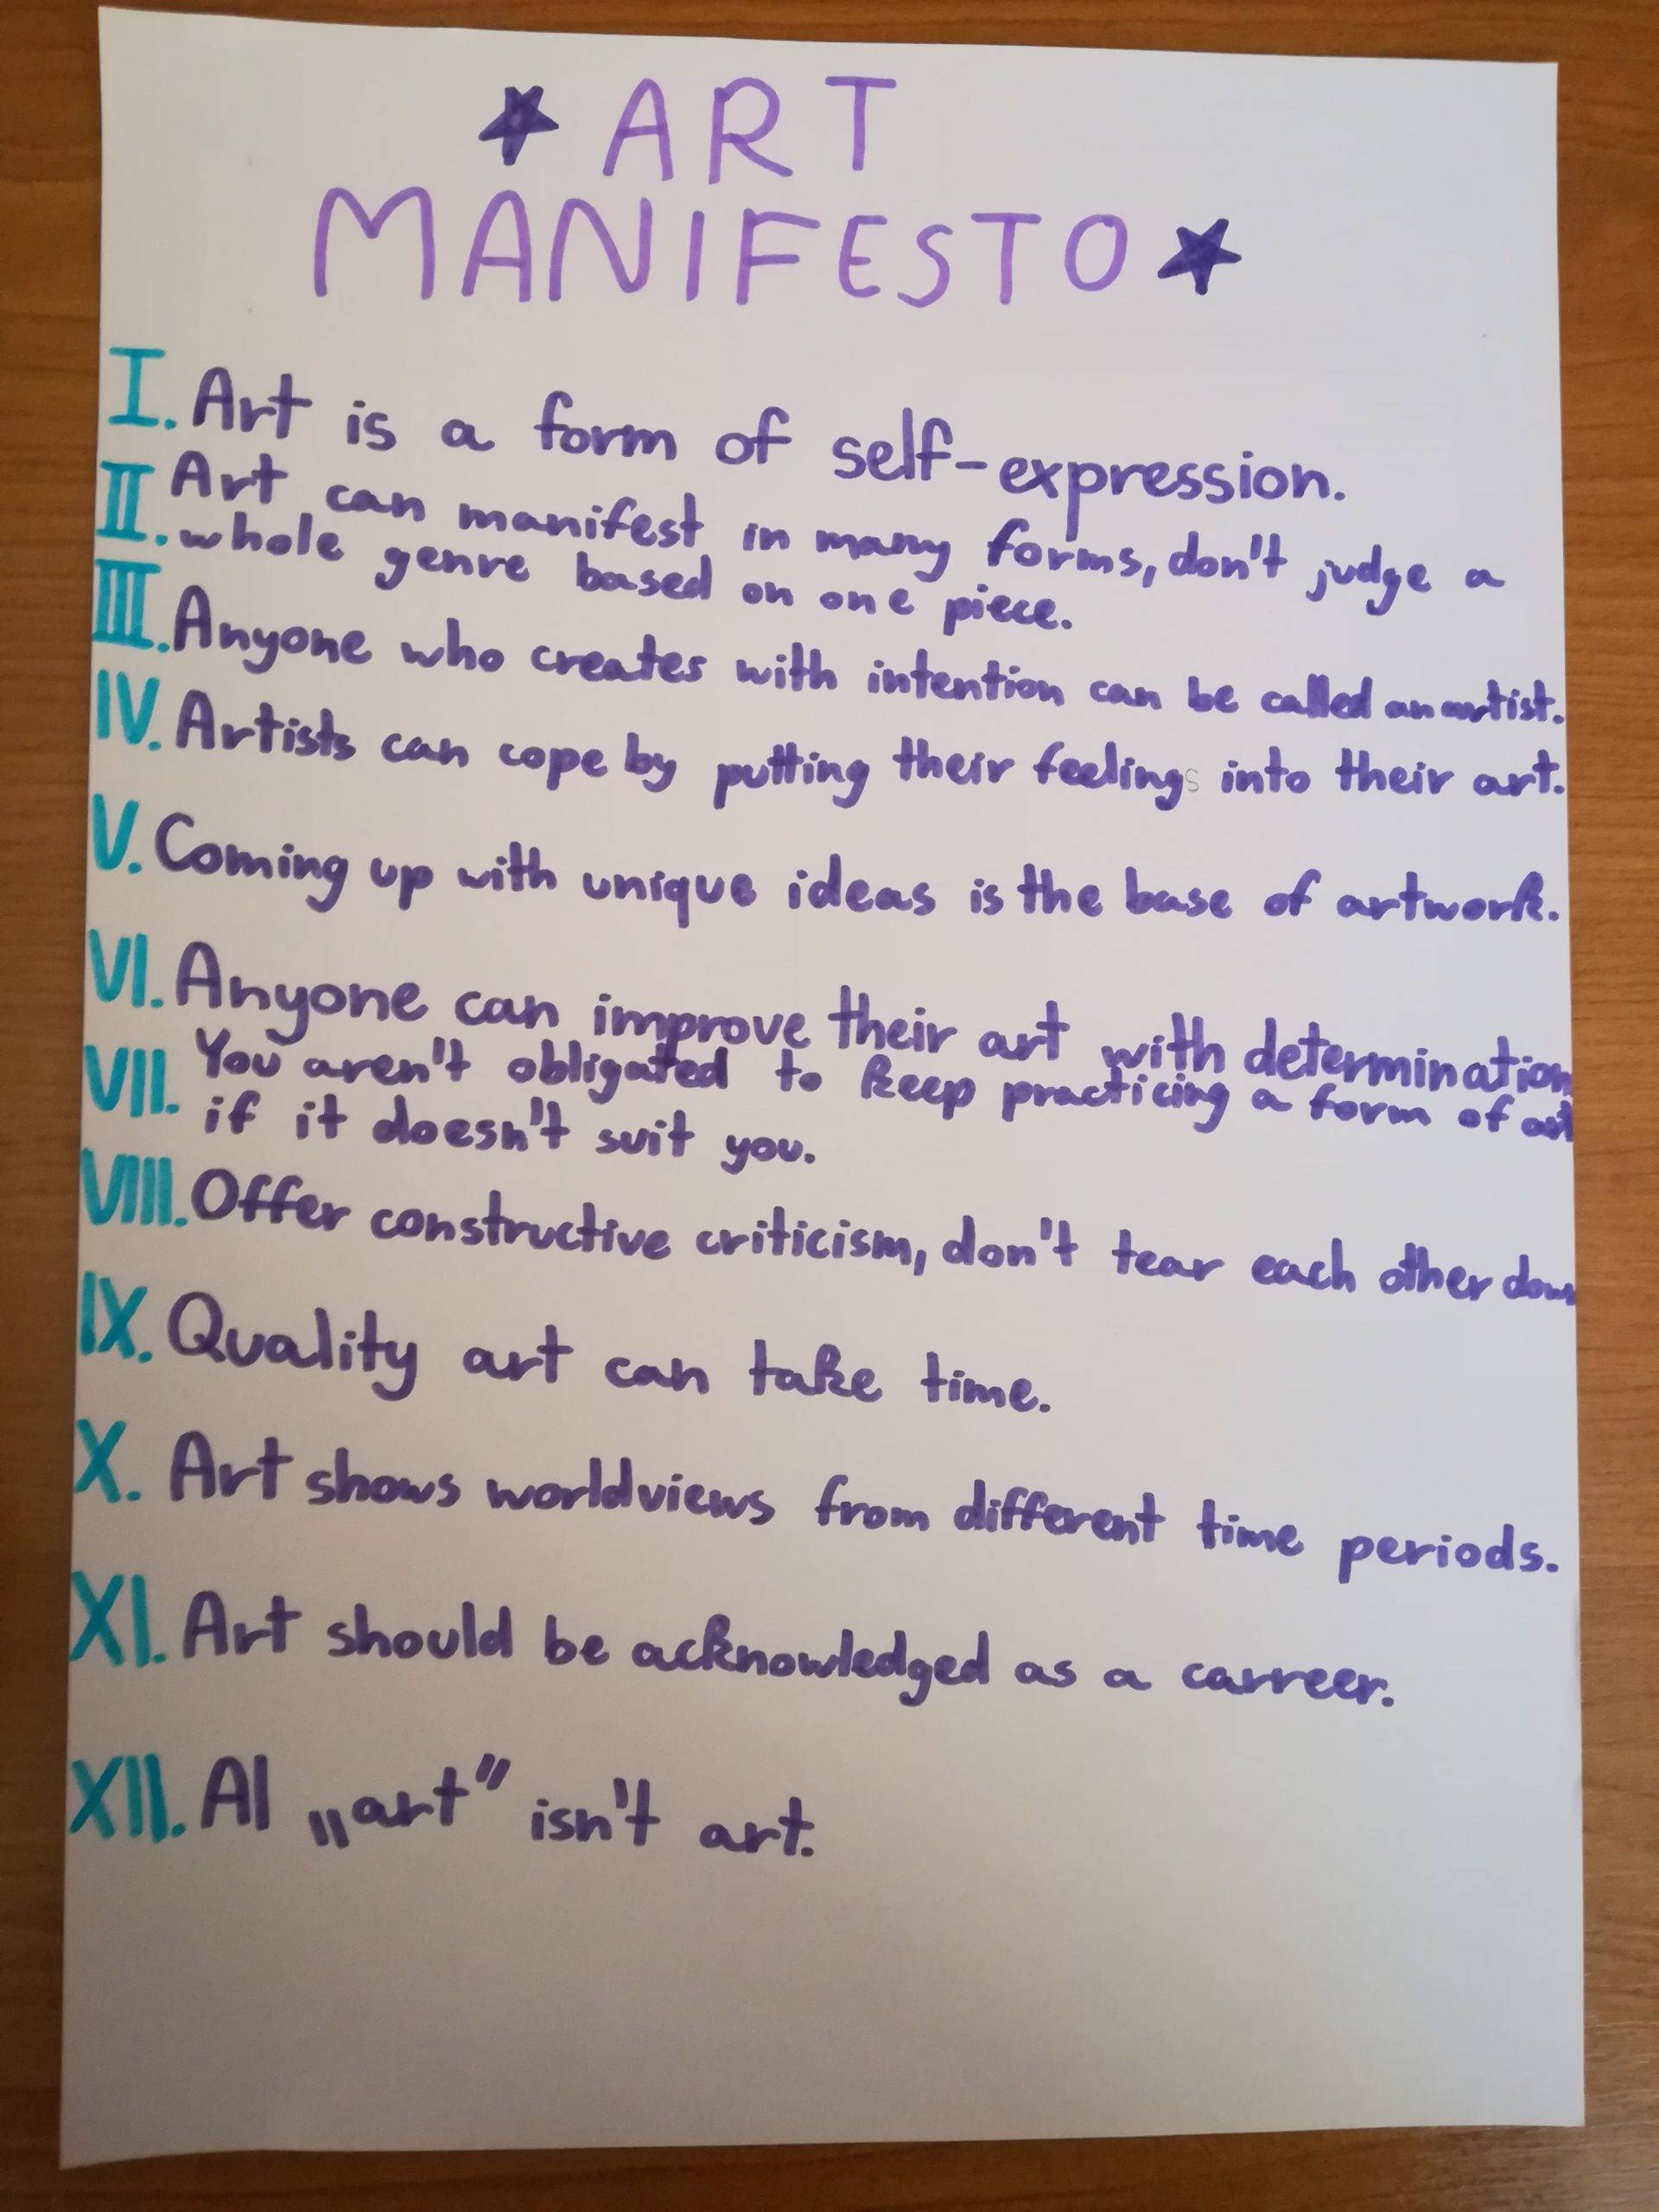 ART
MANIFESTO
I. Art is a form of self-expression.
II. Art can manifest in many forms, don't judge a
whole genre based on one piece.
III. Anyone who creates with intention can be called an artist.
IV. Artists can cope by putting their feelings into their art.
V. Coming up with unique ideas is the base of artwork.
VI. Anyone can improve their art with determination
VII. You aren't obligated to keep practicing a form of art
if it doesn't suit you.
VIII. Offer constructive criticism, don't tear each other down
IX. Quality art can take time.
X. Art shows worldviews from different time periods.
XI. Art should be acknowledged as a carreer.
XII. AI „art” isn't art.